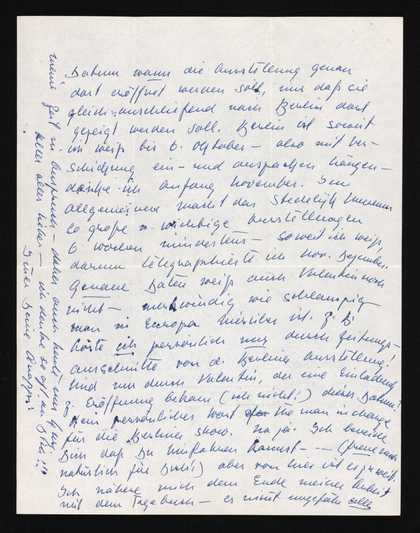 Datum wann die Ausstellung genau
dort eröffnet werden soll, nur daß sie
gleich anschließend nach Berlin dort
gezeigt werden soll. Berlin ist soweit
ich weiß bis 6. Oktober – also mit Ver-
schickung ein- und auspacken hängen –
denke ich anfang November. Im
allgemeinen macht das Stedelijk Museum
so große & wichtige Ausstellungen
6 Wochen mindestens – soweit ich weiß,
darum telegraphierte ich Nov. Dezember.
Genaue Daten weiß auch Valentin noch
nicht – merkwürdig wie schlampig
man in Europa hierüber ist. z. B.
hörte ich persönlich nur durch Zeitungs-
ausschnitte von d. Berliner Ausstellung!
Und nur durch Valentin, der eine Einladung
z. Eröffnung bekam (ich nicht!) dieses Datum!
Kein persönliches Wort the man in charge
für die Berliner show. na ja. Ich beneide
Dich daß Du hinfahren kannst – – – (freue mich
natürlich für Dich!) aber von hier ist es zu weit.
Ich nähere mich dem Ende meiner Arbeit
mit dem Tagebuch – es nimmt ungefähr alle
meine Zeit in Anspruch – daher auch heute nur Gruß
Alles alles Liebe – ich denke so oft an Dich!!!
Deine